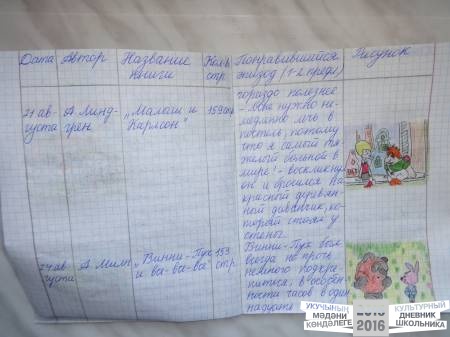 Дата Автор Название книги Кол-ь стр. Понравившийся эпизод (1-2 предл) Рисунок
21 августа А. Линдгрен „Малыш и Карлсон" 159 стр
гораздо полезнее
- Мне нужно немедленно лечь в
постель, потому
что я самый тяжелый больной в
мире! - воскликнул
он и бросился на
красный деревянный диванчик, который стоял у
стены.
24 августа А. Милн „Винни-Пух и ва-ва-ва" 153 стр.
Винни-Пух был
всегда не прочь
немного подкрепиться, в особенности часов в одиннадцать
УКУЧЫНЫҢ
МӘДӘНИ
КӨНДӘЛЕГЕ
2015
2016
КУЛЬТУРНЫЙ
ДНЕВНИК
ШКОЛЬНИКА